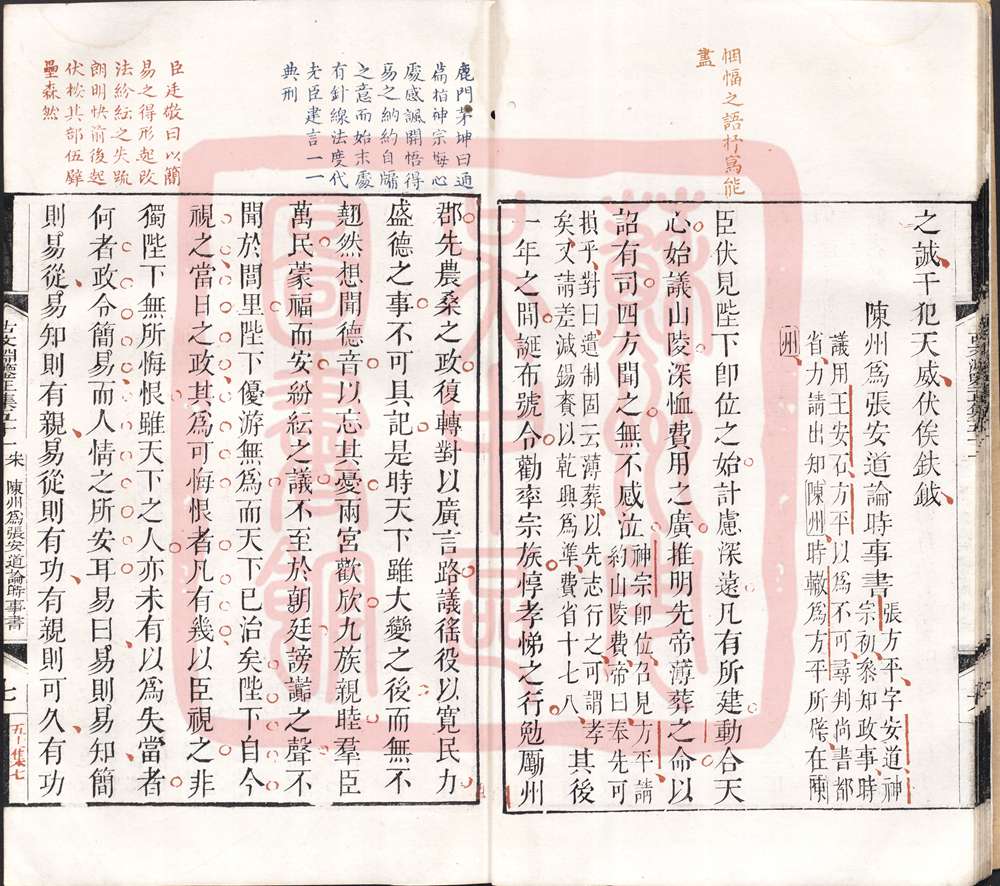 悃愊之語抒寫能
盡
之誠干犯天威伏俟鈇鉞
陳州爲張安道論時事書
張方平字安道神
宗初參知政事時
議用王安石方平以爲不可尋判尚書都
省力請出知陳州時轍爲方平所辟在陳
州
臣伏見陛下卽位之始計慮深遠凡有所建動合天
心始議山陵深恤費用之廣推明先帝薄葬之命以
詔有司四方聞之無不感泣
神宗卽位召見方平請
約山陵費帝曰奉先可
損乎對曰遺制固云薄葬以先志行之可謂孝
矣又請差減錫賚以乾興爲準費省十七八
其後
一年之間誕布號令勸率宗族惇孝悌之行勉厲州
鹿門茅坤曰通
篇指神宗悔心
處感諷開悟得
易之納約自牖
之意而始末處
有針線法度代
老臣建言一一
典刑
臣廷敬曰以簡
易之得形起改
法紛紜之失疏
朗明快前後起
伏極其部伍壁
壘森然
郡先農桑之政復轉對以廣言路議徭役以寬民力
盛德之事不可具記是時天下雖大變之後而無不
翹然想聞德音以忘其憂兩宮歡欣九族親睦羣臣
萬民蒙福而安紛紜之議不至於朝廷謗讟之聲不
聞於閭里陛下優游無爲而天下已治矣陛下自今
視之當日之政其爲可悔恨者凡有幾以臣視之非
獨陛下無所悔恨雖天下之人亦未有以爲失當者
何者政令簡易而人情之所安耳易曰易則易知簡
則易從易知則有親易從則有功有親則可久有功
古文淵鑒正集五十一 宋 陳州爲張安道論時事書
七